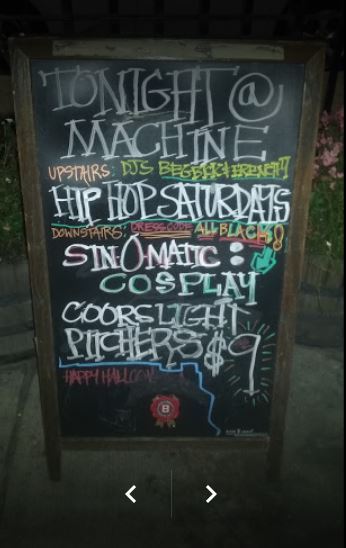 TONIGHT @
MACHINE
UPSTAIRS: DJS
HIP HOP SATURDAYS
DOWNSTAIRS: DRESS CODE ALL BLACK!
SIN-O-MATIC :
COSPLAY
COORS LIGHT
PITCHERS $9
HAPPY
B